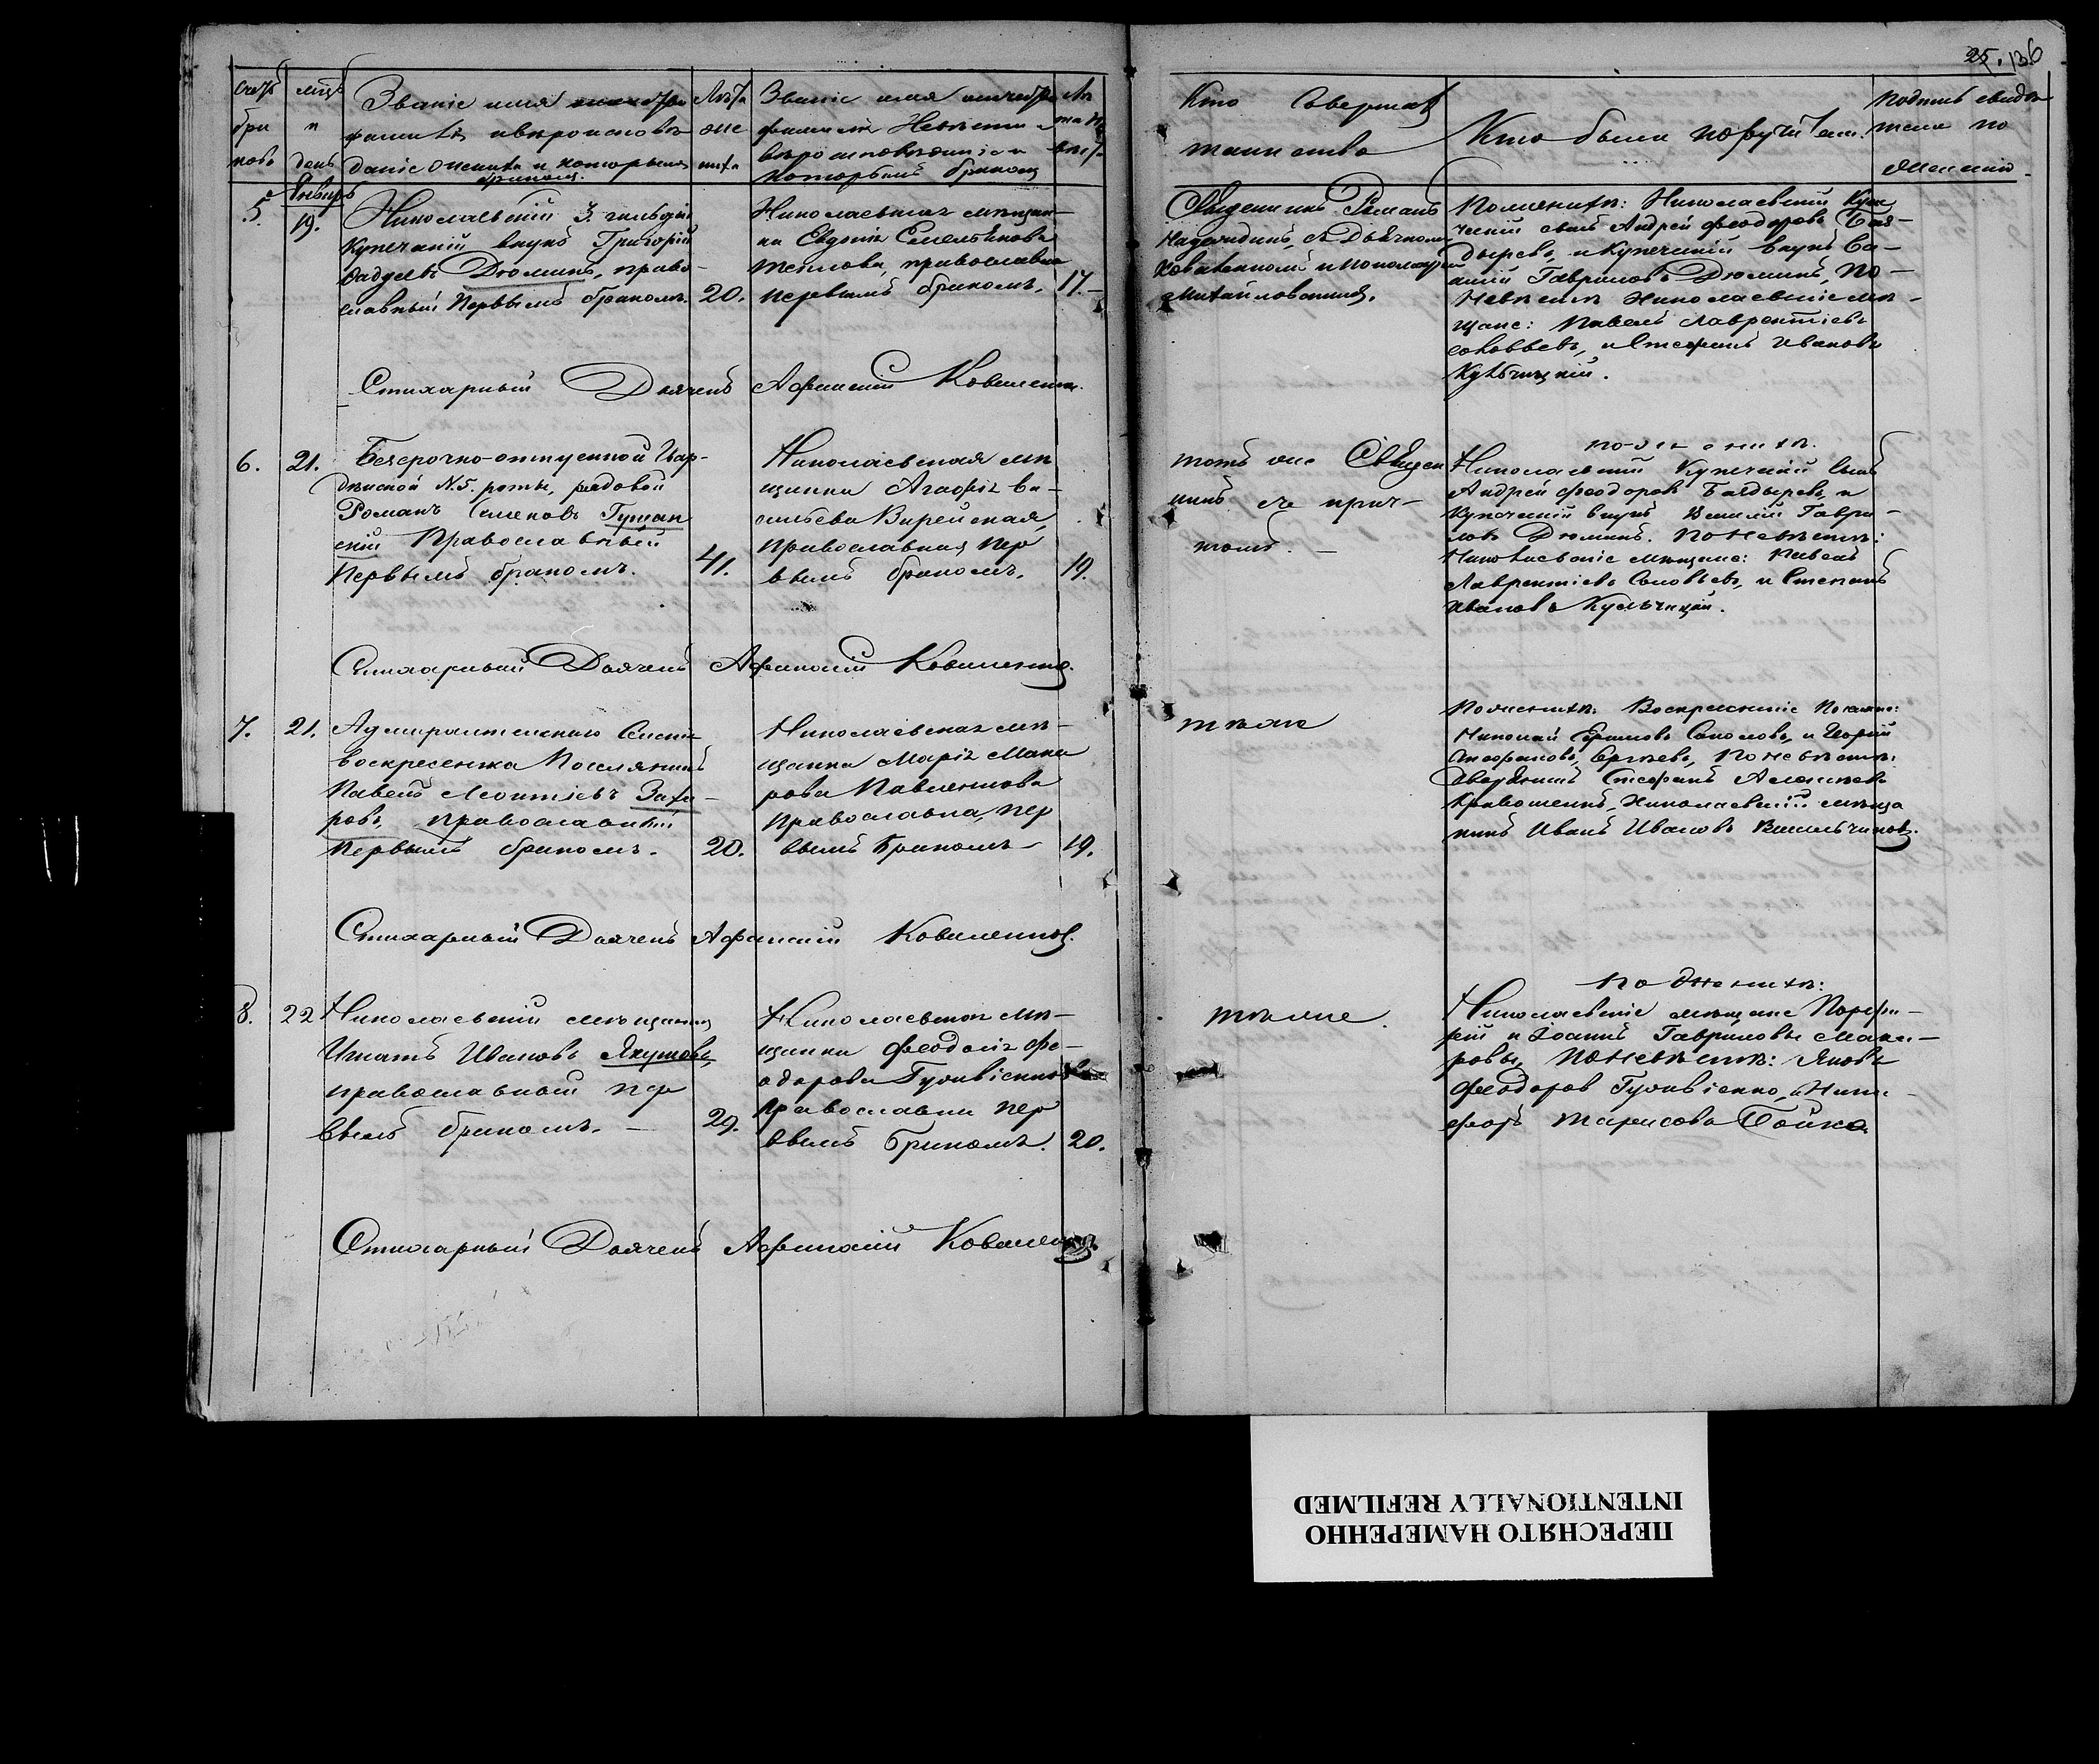 25. 136
Счетъ браковъ
мцъ и день
Званіе имя фамилія и вѣроисповѣданіе жениха и которымъ бракомъ
Лѣта жениха
Званіе имя отчество фамилія Невѣсты вѣроисповѣданіе и которымъ бракомъ
Лѣта Невѣс.
Кто Совершалъ таинство
Кто были поручители
подпись свидѣтелей по желанію
Январь
5.
19.
Николаевскій 3 гильдіи
купеческій внукъ Григорій
Дюминъ, право-
славный первымъ бракомъ.
20.
Николаевская мѣщан-
ка Евдокія Емельянова
Теплова, православна
первымъ бракомъ.
17.
Священникъ Романъ
съ Дьячкомъ
Коваленкомъ и Пономаремъ
Михайловскимъ.
По женихѣ: Николаевскій Купе
ческій сынъ Андрей Феодоровъ Бал-
дыревъ, и купеческій внукъ Ва-
силій Гавриловъ Дюминъ, По
Невѣстѣ Николаевскіе мѣ-
щане: Павелъ Лаврентіевъ
Соловьевъ, и Стефанъ Ивановъ
Кульчицкій.
Стихарный Дьячекъ Афанасій Коваленко.
6.
21.
Безсрочно-отпускной
N. 5. роты, рядовой
Романъ Семеновъ Гуман
скій Православный
Первымъ бракомъ.
41.
Николаевская мѣ
щанка Агафія Ва-
сильева Вирейская,
православная, пер
вымъ бракомъ.
19.
тотъ же Священ
никъ съ прич-
томъ. —
по женихѣ.
Николаевскій Купеческій сынъ
Андрей Феодоровъ Балдыревъ, и
купеческій внукъ Василій Гаври-
ловъ Дюминъ. По Невѣстѣ:
Николаевскіе мѣщане: Павелъ
Лаврентіевъ Соловьевъ, и Стефанъ
Ивановъ Кульчицкій.
Стихарный Дьячекъ Афанасій Коваленко.
7.
21.
Адмиралтейскаго Селенія
Воскресенска Поселянинъ
Павелъ Леонтіевъ Заха-
ровъ, православный
первымъ бракомъ.
20.
Николаевская мѣ-
щанка Марія Мака
рова Павленкова
православна, пер
вымъ бракомъ
19.
тѣже
По женихѣ: Воскресенскіе Поселяне:
Николай Соколовъ, и Георгій
По невѣстѣ:
Стефанъ Алексѣевъ
Николаевскій мѣща
нинъ Иванъ Ивановъ Васильчиковъ.
Стихарный Дьячекъ Афанасій Коваленко.
8.
22
Николаевскій мѣщанинъ
Игнатъ Ивановъ Якушовъ,
православный пер
вымъ бракомъ. —
29.
Николаевская мѣ-
щанка Феодосія Фе-
одорова Гуливіенко
православна пер
вымъ бракомъ.
20.
тѣже.
по женихѣ:
Николаевскіе мѣщане Порфи-
рій и Іоаннъ Гавриловы Мака-
ровы, по невѣстѣ: Яковъ
Феодоровъ Гуливіенко, и Ники-
форъ Тарасовъ Бойко.
Стихарный Дьячекъ Афанасій Коваленко
ПЕРЕСНЯТО НАМЕРЕННО
INTENTIONALLY REFILMED